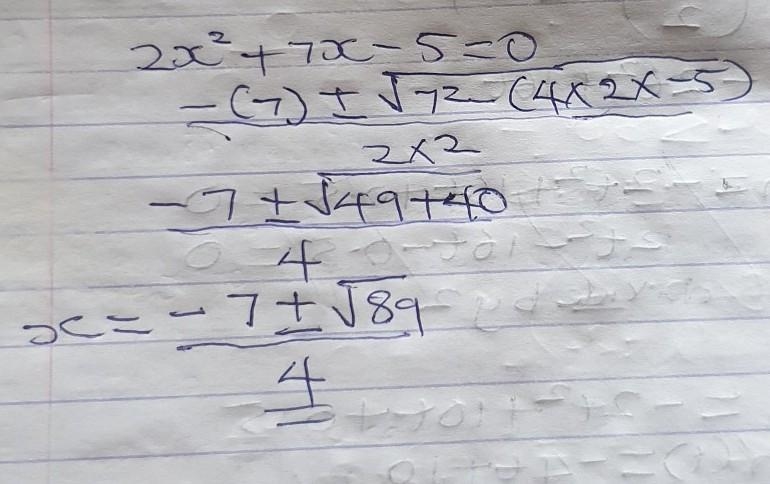 2x² + 7x - 5 = 0
-(7) ± √7² - (4×2×-5)
2×2
-7 ± √49+40
4
x = -7 ± √89
4